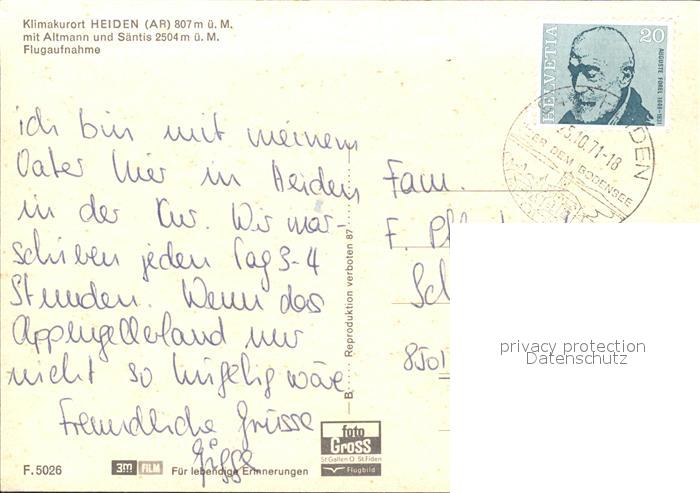 Klimakurort HEIDEN (AR) 807 m ü. M.
mit Altmann und Säntis 2504 m ü. M.
Flugaufnahme
HELVETIA
20
AUGUSTE FOREL 1848-1931
HEIDEN
25.10.71-18
ÜBER DEM BODENSEE
ich bin mit meinem
Vater hier in Heiden
in der Kur. Wir mar-
schieren jeden Tag 3-4
Stunden. Wenn das
Appenzellerland nur
nicht so hügelig wäre
Freundliche Grüsse
Fam.
F. Pf
Sch
8501
B
Reproduktion verboten 87
privacy protection
Datenschutz
foto
GROSS
St.Gallen O. St.Fiden
Flugbild
F. 5026
3M FILM
Für lebendige Erinnerungen